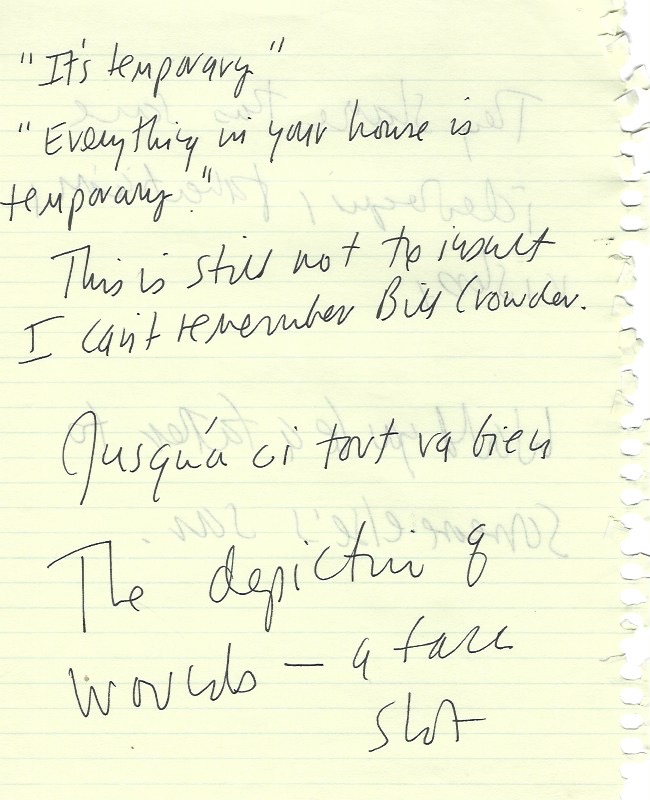 "It's temporary"
"Everything in your house is
temporary."
This is still not to insult
I can't remember Bill Crowder.
Jusqu'à ci tout va bien
The depiction of
worlds — a face
slot